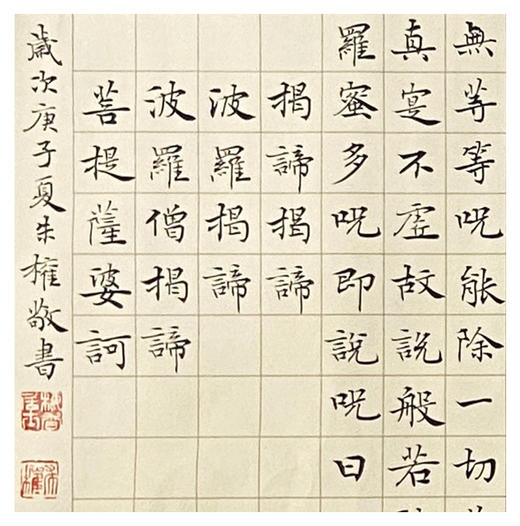 無䒭等呪能除一切
真寔不虛故說般若
羅蜜多呪即說呪曰
揭諦揭諦
波羅揭諦
波羅僧揭諦
菩提薩婆訶
歲次庚子夏朱權敬書